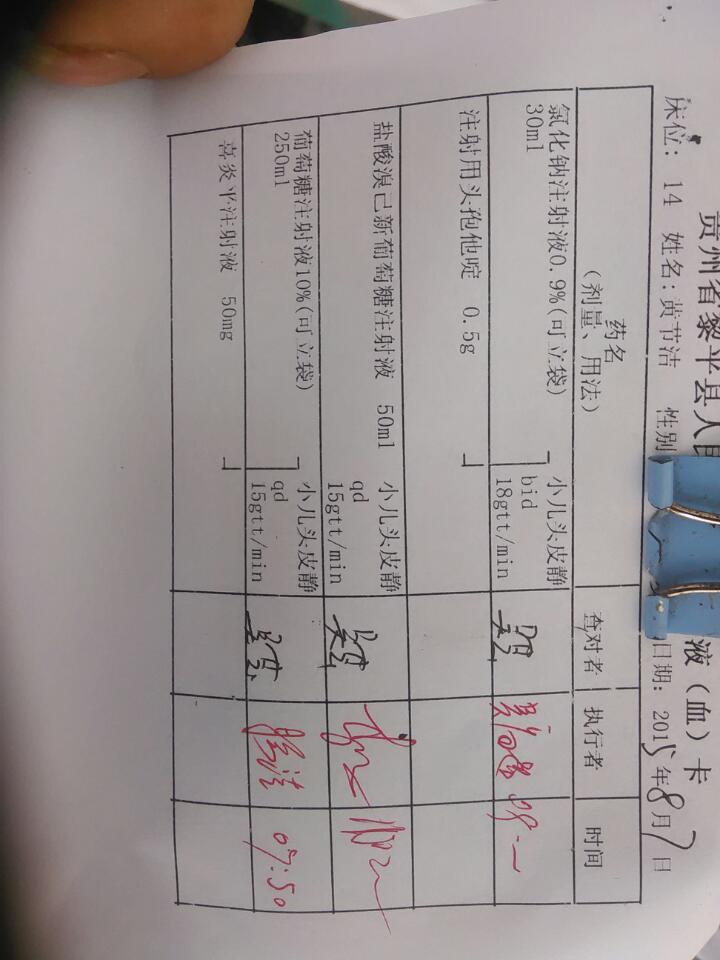 贵州省黎平县人民
液（血）卡
床位： 14 姓名：黄节洁 性别
日期： 2015年8月7日
药名
（剂量、用法）
查对者
执行者
时间
氯化钠注射液0.9%(可立袋)
30ml
小儿头皮静
bid
18gtt/min
注射用头孢他啶 0.5g
盐酸溴已新葡萄糖注射液 50ml
小儿头皮静
qd
15gtt/min
葡萄糖注射液10%(可立袋)
250ml
小儿头皮静
qd
15gtt/min
07:50
喜炎平注射液 50mg